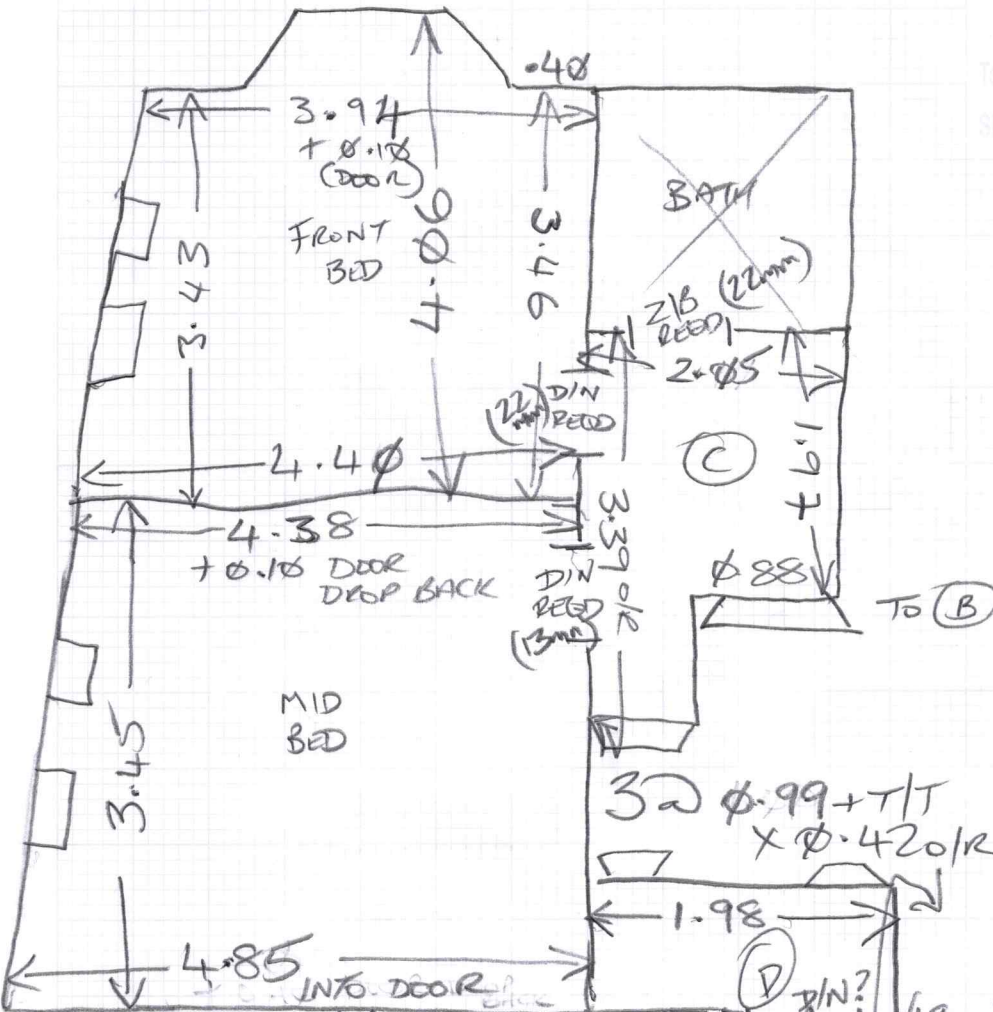 .40
3.94
+ 0.10
(DOOR)
FRONT
BED
4.06
3.43
3.46
BATH
Z/B (22mm)
REQD
2.05
D/N
REQD
(22
mm)
C
1.97
4.40
4.38
+ 0.10 DOOR
DROP BACK
3.39 O/R
D/N
REQD
(13mm)
0.88
TO B
MID
BED
3.45
3@ 0.99 + T/T
X 0.42 O/R
1.98
4.85
INTO DOOR
D
D/N?